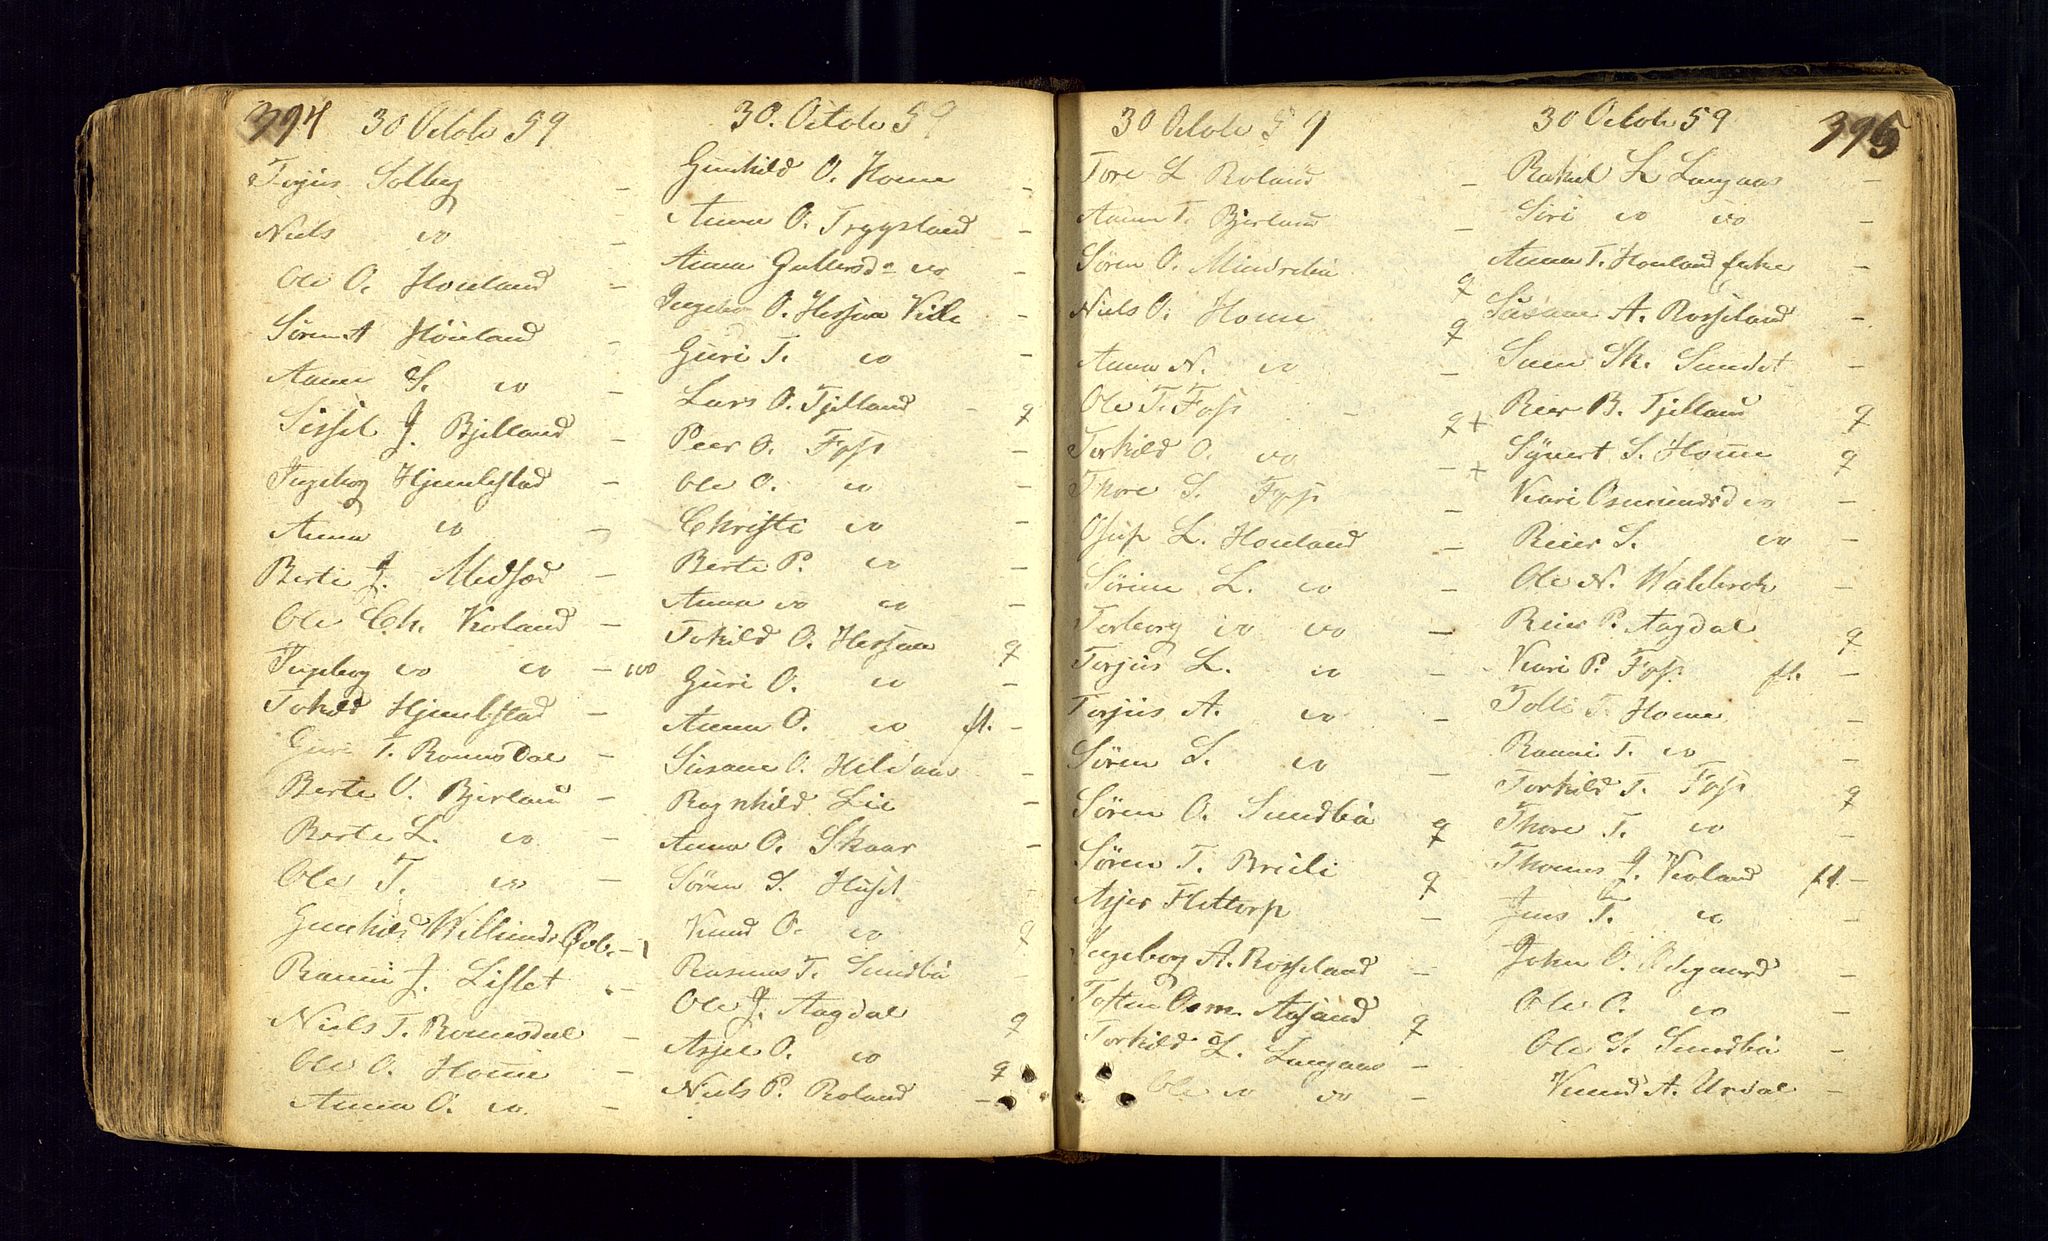 394
30 Octob 59
Torjus Solberg -
Niels do -
Ole O. Houland -
Søren A Houland -
Aanen S. do -
Sissel J. Bjelland -
Ingebog Hjemlestad -
Anna do -
Berte J. Midsød -
Ole Ch. Roland -
Ingeborg do do -
Tokild Hjemlestad -
Guri T. Romesdal -
Berte O. Bjerland -
Berte L. do -
Ole T. do -
Gunhild Willumsd
Ranni J. Lislet -
Niels T. Romesdal -
Ole O. Home -
Anna O. do -
30. Octob 59
Gunhild O. Home -
Anna O. Trygsland -
Anna Gullevsd do -
Ingebo O. Hessaa -
Guri T. do -
Lars O. Tjelland - q
Peer O. Foss -
Ole O. do -
Christi do -
Berte P. do -
Anna do do -
Tokild O. Hessaa q
Guri O. do -
Anna O. do fl. -
Susane O. Hildaas -
Ragnhild Lie -
Anna O. Skaar -
Søren S. Huset -
Knud O. do q
Rasmus T. Sundbø -
Ole J. Aagdal q
Asjel O. do q
Niels P. Roland -
30 Octob 59
Tore L Roland -
Aanen T. Bjerland -
Søren O. Mindrebø q
Niels O. Home q
Anna N. do -
Ole T. Foss - q
Torkild O. do -
Thore S. Foss -
Osup L. Houland -
Sørine L. do -
Torborg do do -
Torjus L. do -
Torjus A. do -
Søren L. do -
Søren O. Sundbø q
Søren T. Breili q
Asjer Flottorp -
Ingeborg A. Rosseland -
Tosten Osm. q
Torkild L. Langaas -
Ole do do -
30 Octob 59
395
Rakel L Langaas -
Siri do do -
Anna T. Houland -
Susane A. Rosseland -
Sk. Sundet -
Reier B. Tjelland q
Synert S. Home q
Kari Osmundsd do -
Reier S. do -
Ole N. -
Reier P. Aagdal q
Kari P. Foss fl. -
Tolli T. Home -
Ranni T. do -
Torkild T. Foss q
Thore T. do -
Thomas J. Roland fl. -
Jens T. do -
John O. Ødegaard -
Ole O. do -
Ole S. Sundbø -
Knud A. Urdal -